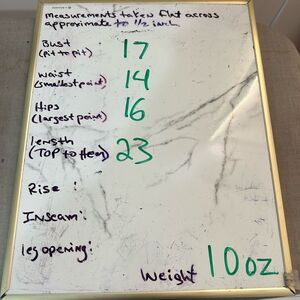 measurements taken flat across
approximate to 1/2 inch
Bust : 17
(Pit to pit)
waist : 14
(smallest point)
Hips : 16
(largest point)
length : 23
(TOP to Hem)
Rise :
Inseam :
leg opening :
Weight 10 oz